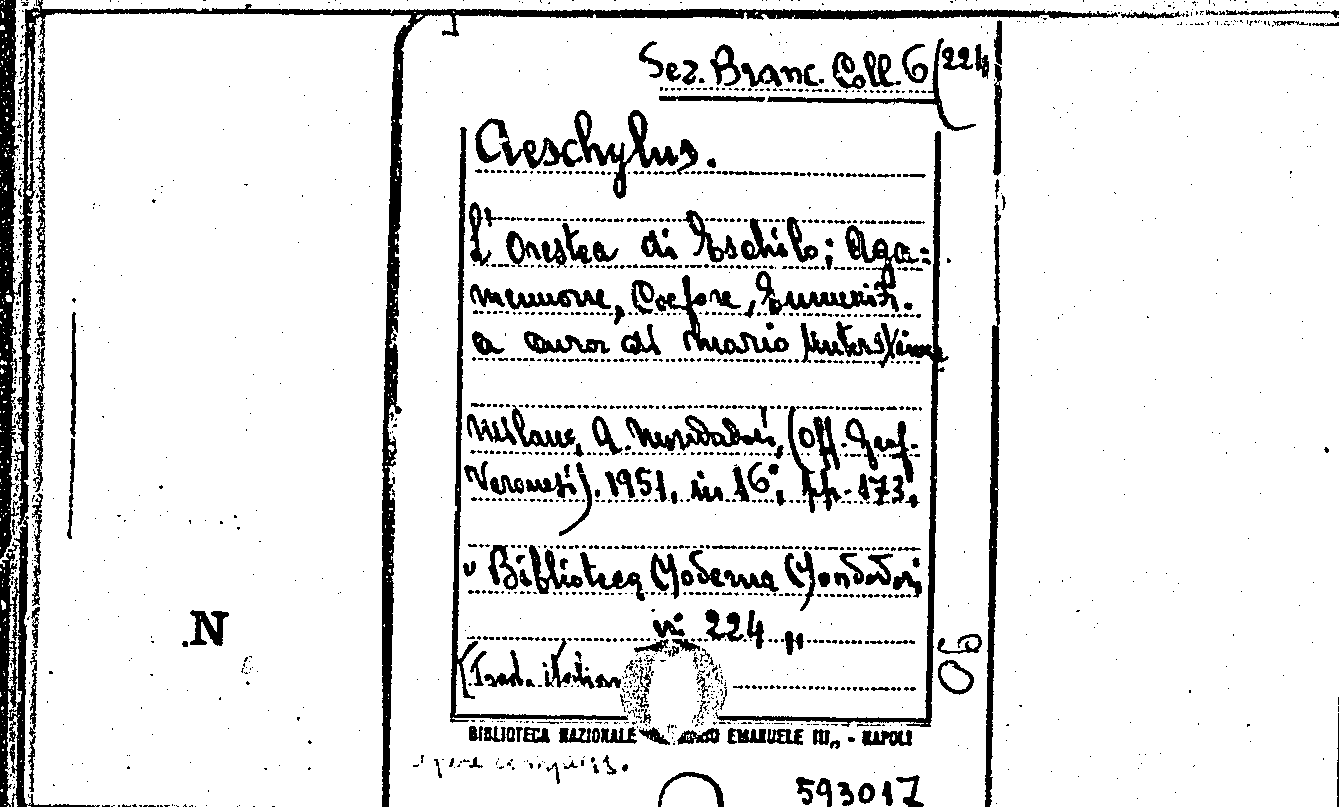 Sez. Branc. Coll. 6 (224
Aeschylus.
L'Orestea di Eschilo; Aga=
memnone, Coefore, Eumenidi.
a cura di Mario Untersteiner
Milano, A. Mondadori, (Off. Graf.
Veronesi). 1951, in 16°, pp. 173.
" Biblioteca Moderna Mondadori
n: 224 "
(Trad. italian
BIBLIOTECA NAZIONALE EMANUELE III„ - NAPOLI
opere compless.
593017
06
.N